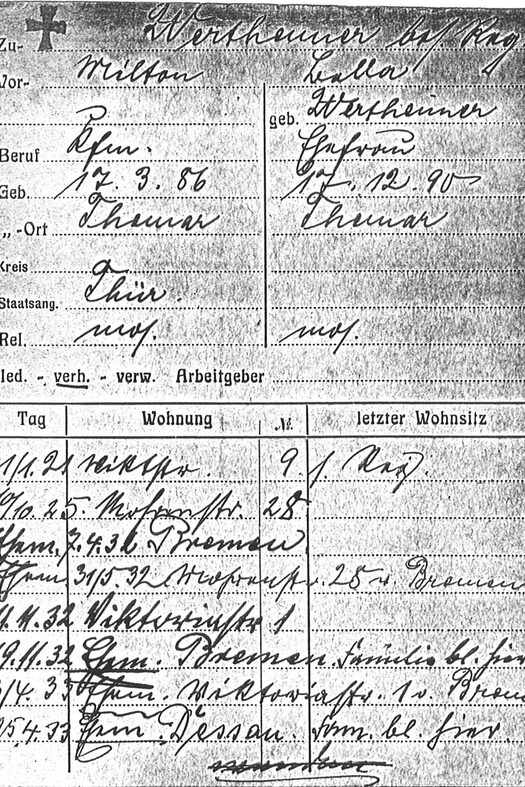 Zu-
Wertheimer bes Reg
Vor- Milton Bella
geb. Wertheimer
Beruf Kfm. Ehefrau
Geb. 17. 3. 86 17. 12. 90
„ -Ort Themar Themar
Kreis
Staatsang. Thür.
Rel. mos. mos.
led. - verh. - verw. Arbeitgeber
Tag Wohnung № letzter Wohnsitz
1/1.21 Viktstr. 9. s. Reg.
10.25. Mohrenstr. 28
Ehem. 7.4.32 Bremen
Ehem 31/5.32 Mohrenstr. 28 v. Bremen
11.32 Viktoriastr 1
19.11.32 Ehm. Bremen. Familie bl. hier
4.33 Ehem. Viktoriastr. 1 v. Brem
25.4.33 Ehem. Dessau. Fam. bl. hier.
wenden